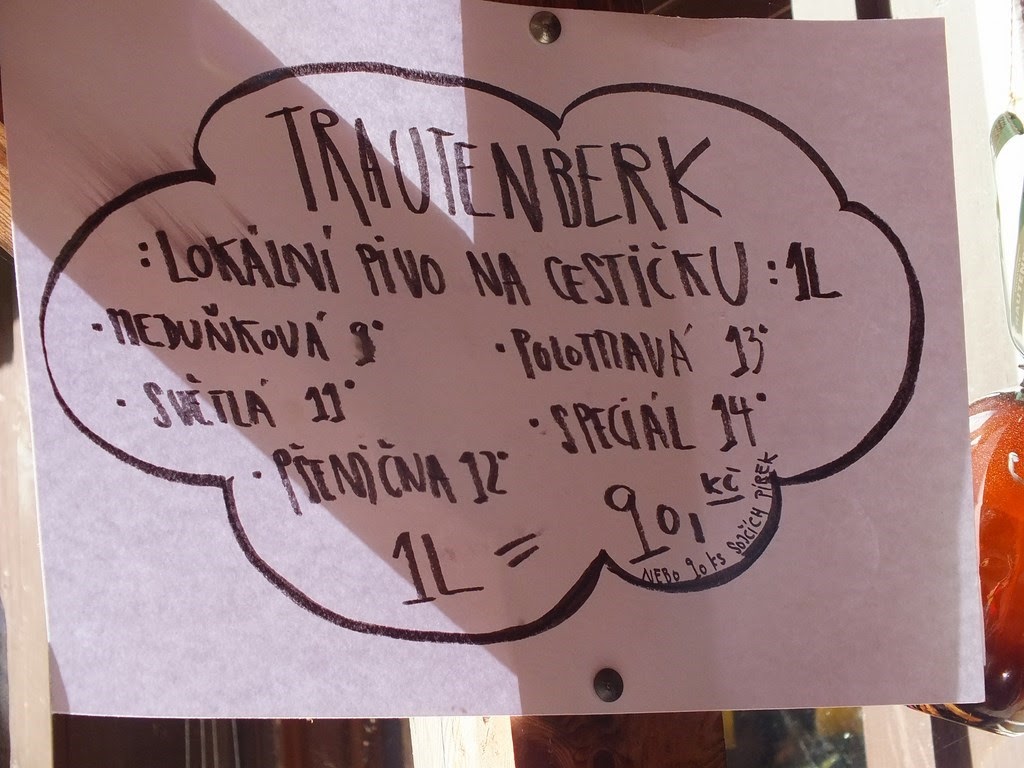 TRAUTENBERK
:LOKÁLNÍ PIVO NA CESTIČKU:1L
·MEDUŇKOVÁ 9°
·POLOTMAVÁ 13°
·SVĚTLÁ 11°
·SPECIÁL 14°
·PŠENIČNA 12°
1L = 90, KČ
NEBO 90 KS SOJČÍCH PÍREK